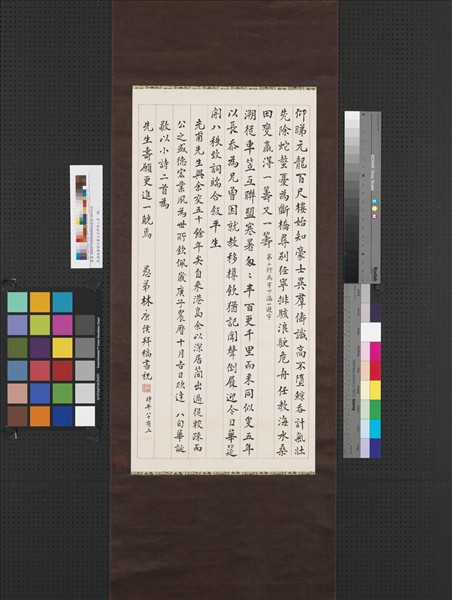 仰睇元龍百尺樓始知豪士異羣儔識高不墮鯨吞計氣壯
先除蛇螫憂為斷橋尋別徑寧排駭浪駛危舟任教海水桑
田變贏得一籌又一籌
溯從車笠互聯盟寒暑匆匆半百更千里而來同似叟五年
以長忝為兄曾因就教移樽飲猶記聞聲倒屣迎今日華筵
開八秩攷詞端合叙平生
先生與余交五十餘年矣自來港島余以深居簡出過從較疎而
公之盛德宏業風為世所欽佩歲庚子農曆十月吉日欣逢八旬華誕
敬以小詩二首為
先生壽願更進一觥焉
愚弟林
拜稿書祝
時年八十有五